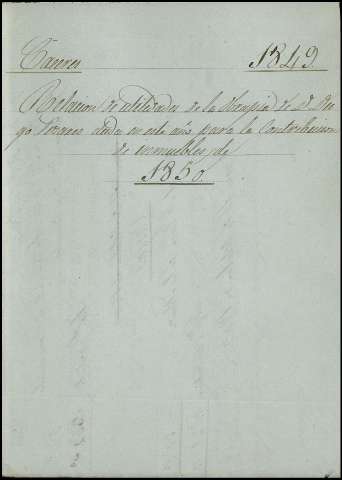 Caceres 1849.
Relacion de utilidades de la Obrapia de D. Die-
go dada en este año para la Contribucion
de inmuebles de
1850.